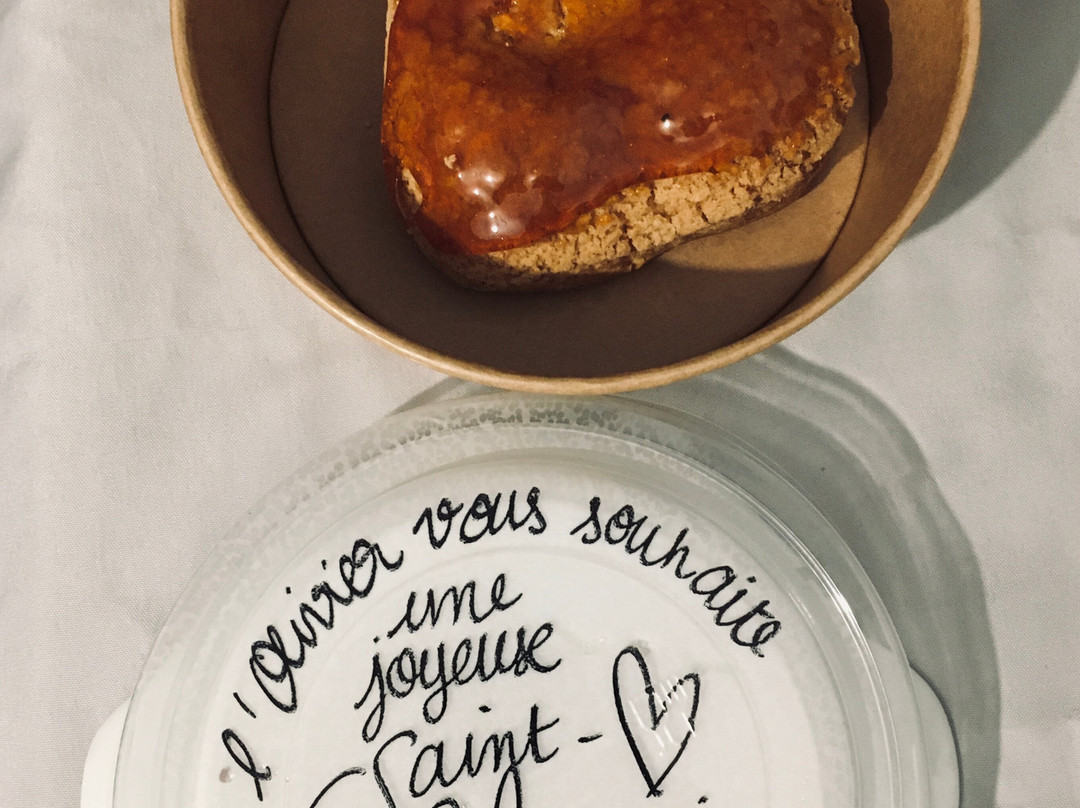 l'Olivier vous souhaite
une
joyeuse
Saint-